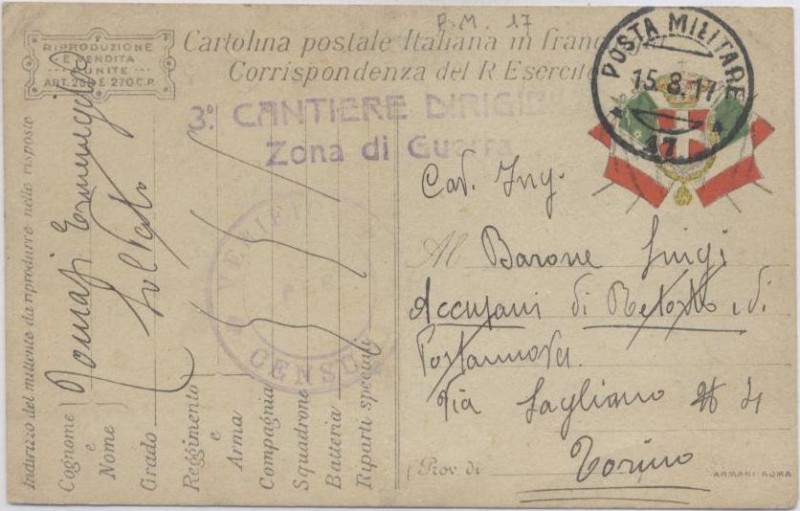 P.M. 17
RIPRODUZIONE
E VENDITA
RIUNITE
ART. 2 E 270 C.P.
Cartolina postale Italiana in franc
Corrispondenza del R Esercito
POSTA MILITARE
15.8.17
17
3° CANTIERE DIRIGIBILI
Zona di Guerra
VERIFI
CENSU
Indirizzo del mittente da riprodurre nelle risposte
Cognome
e
Nome
Tomasi Ermenegildo
Grado
Soldato
Reggimento
e
Arma
Compagnia
Squadrone
Batteria
Riparti speciali
Cav. Ing.
Al Barone Luigi
Accusani di Retorto e di
Portanova
Via Sagliano N 4
(Prov. di
Torino
ARMANI ROMA